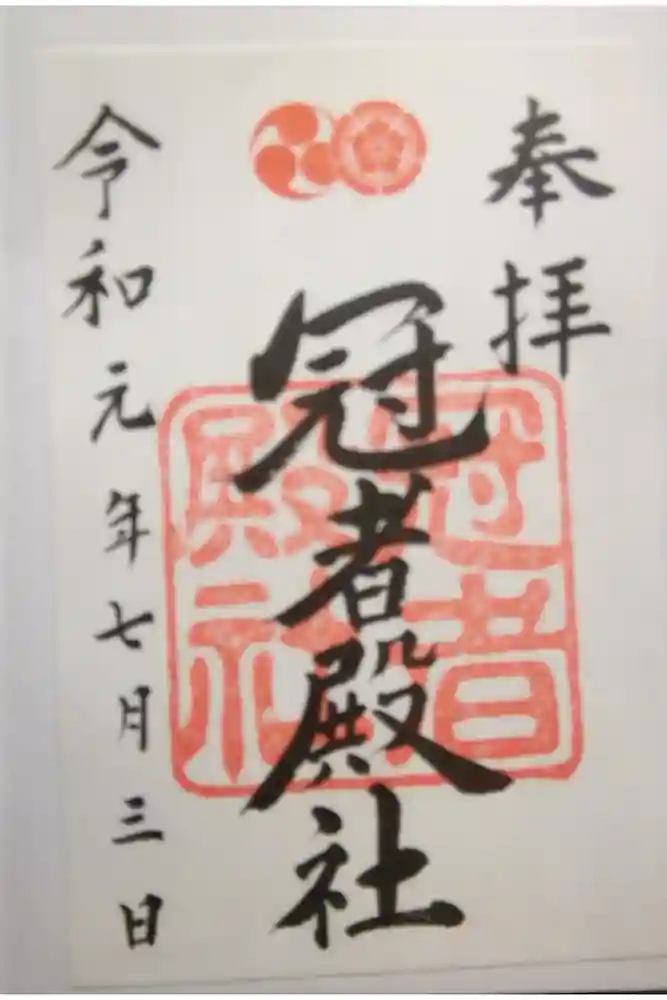 奉拝
冠者殿社
冠者
殿社
令和元年七月三日